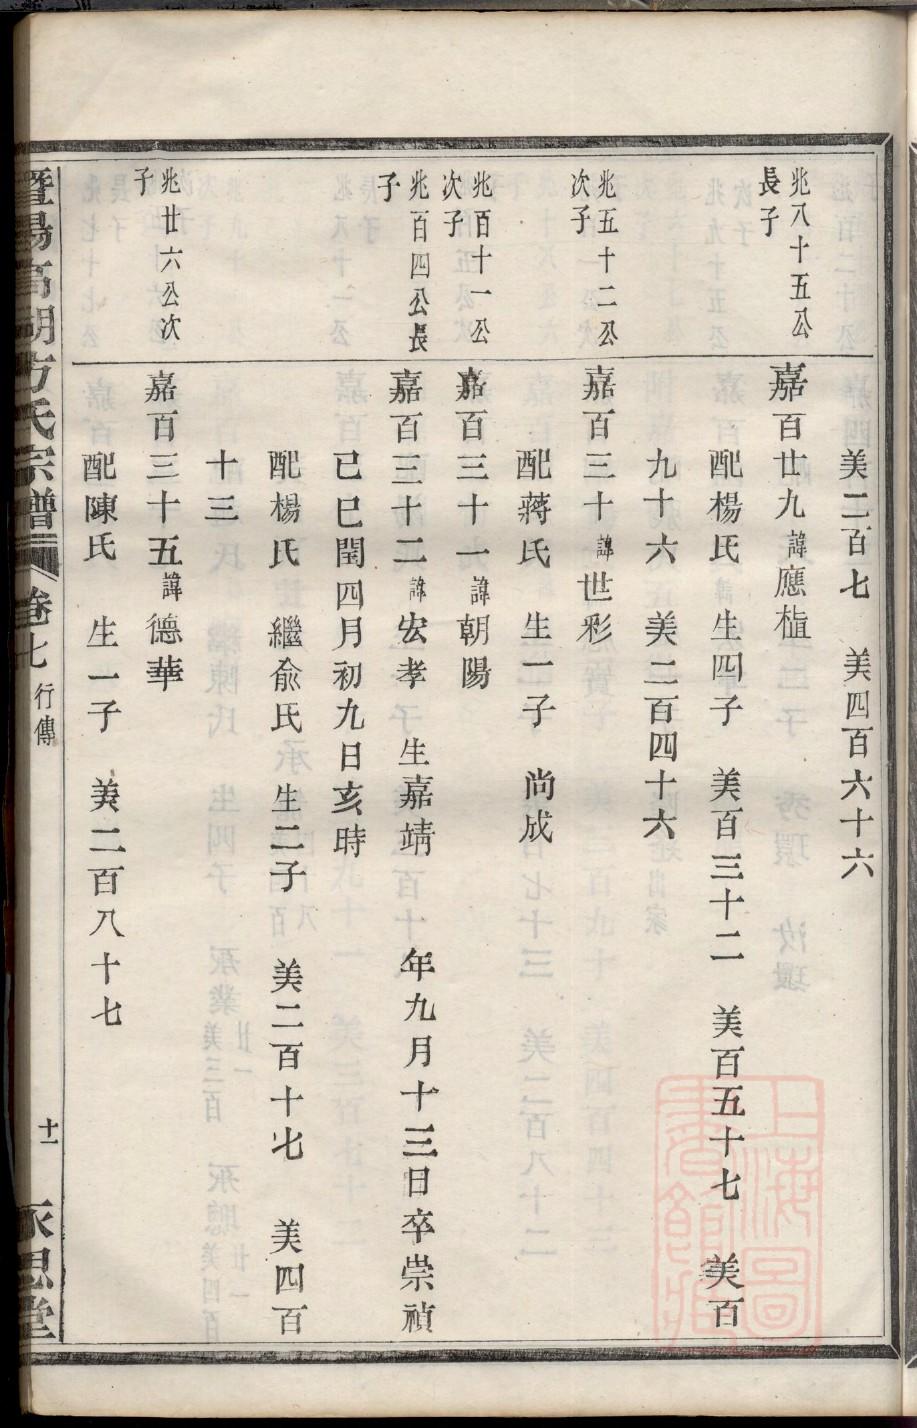 美二百七　美四百六十六
兆八十五公
長子
嘉百廿九諱應楂
配楊氏　生四子　美百三十二　美百五十七　美百
九十六　美二百四十六
兆五十二公
次子
嘉百三十諱世彩
配蔣氏　生一子　尚成
兆百十一公
次子
嘉百三十一諱朝陽
兆百四公長
子
嘉百三十二諱宏孝　生嘉靖　年九月十三日卒崇禎
己巳閏四月初九日亥時
配楊氏　繼俞氏　生二子　美二百十七　美四百
十三
兆廿六公次
子
嘉百三十五諱德華
配陳氏　生一子　美二百八十七
暨陽高湖方氏宗譜　卷七　行傳　十一　永思堂
上海圖
書館藏